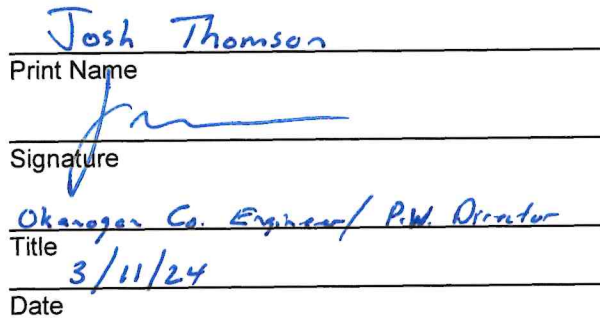 Josh Thomson
Print Name
Signature
Okanogan Co. Engineer/ P.W. Director
Title
3/11/24
Date